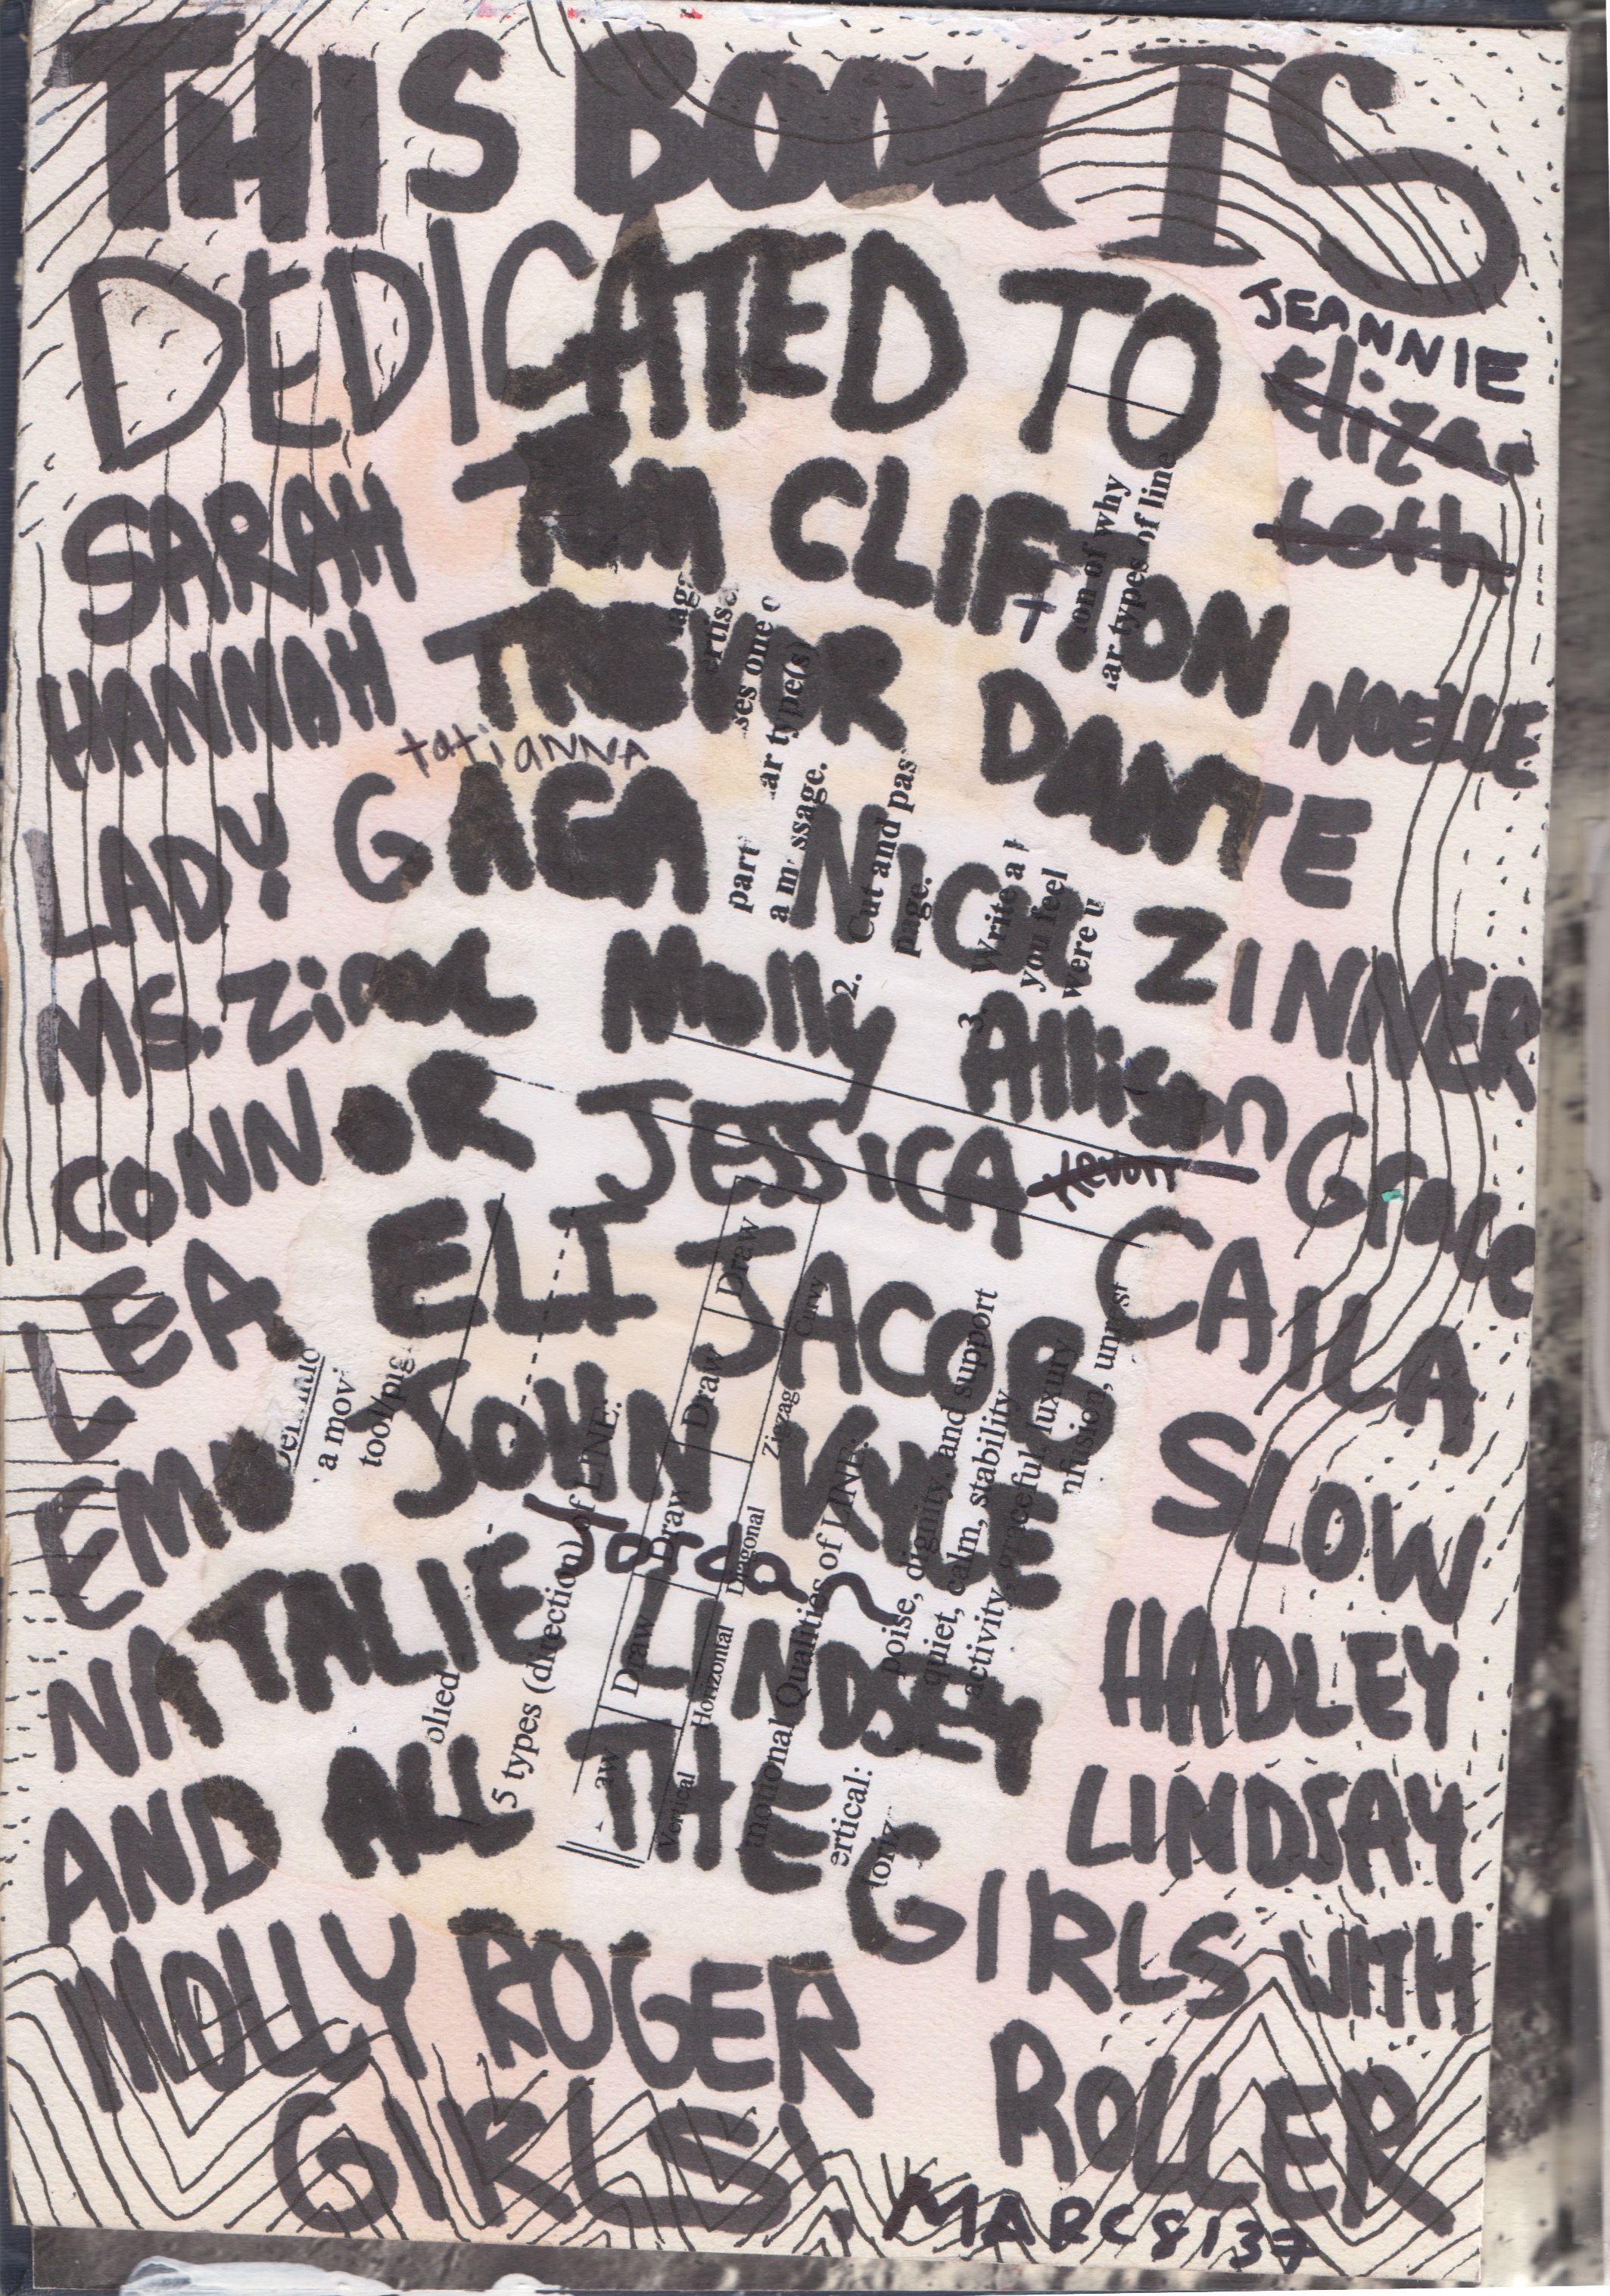 THIS BOOK IS
DEDICATED TO
JEANNIE
Eliza-
beth
SARAH TOM CLIFTON
HANNAH TREVOR DANTE NOELLE
tatiANNA
LADY GAGA NICK ZINNER
MS. Molly Allison Grace
CONNOR JESSICA CAILA
Kevon
LEA ELI JACOB SLOW
EMU JOHN KYLE HADLEY
Jordan
NATALIE LINDSEY LINDSAY
AND ALL THE GIRLS WITH
MOLLY ROGER ROLLER
GIRLS!
MARC 8137
on of why
ar types of line
ses one
ar type(s)
part
a message.
2. Cut and
page.
3. Write a
you feel
were
a mov
tool/pig
olied
5 types (direction) of LINE:
Draw Draw Draw Draw
Vertical Horizontal Diagonal Zigzag Curvy
motional Qualities of LINE:
ertical: poise, dignity, and support
toriz quiet, calm, stability
activity, graceful, luxury
nfusion, unrest